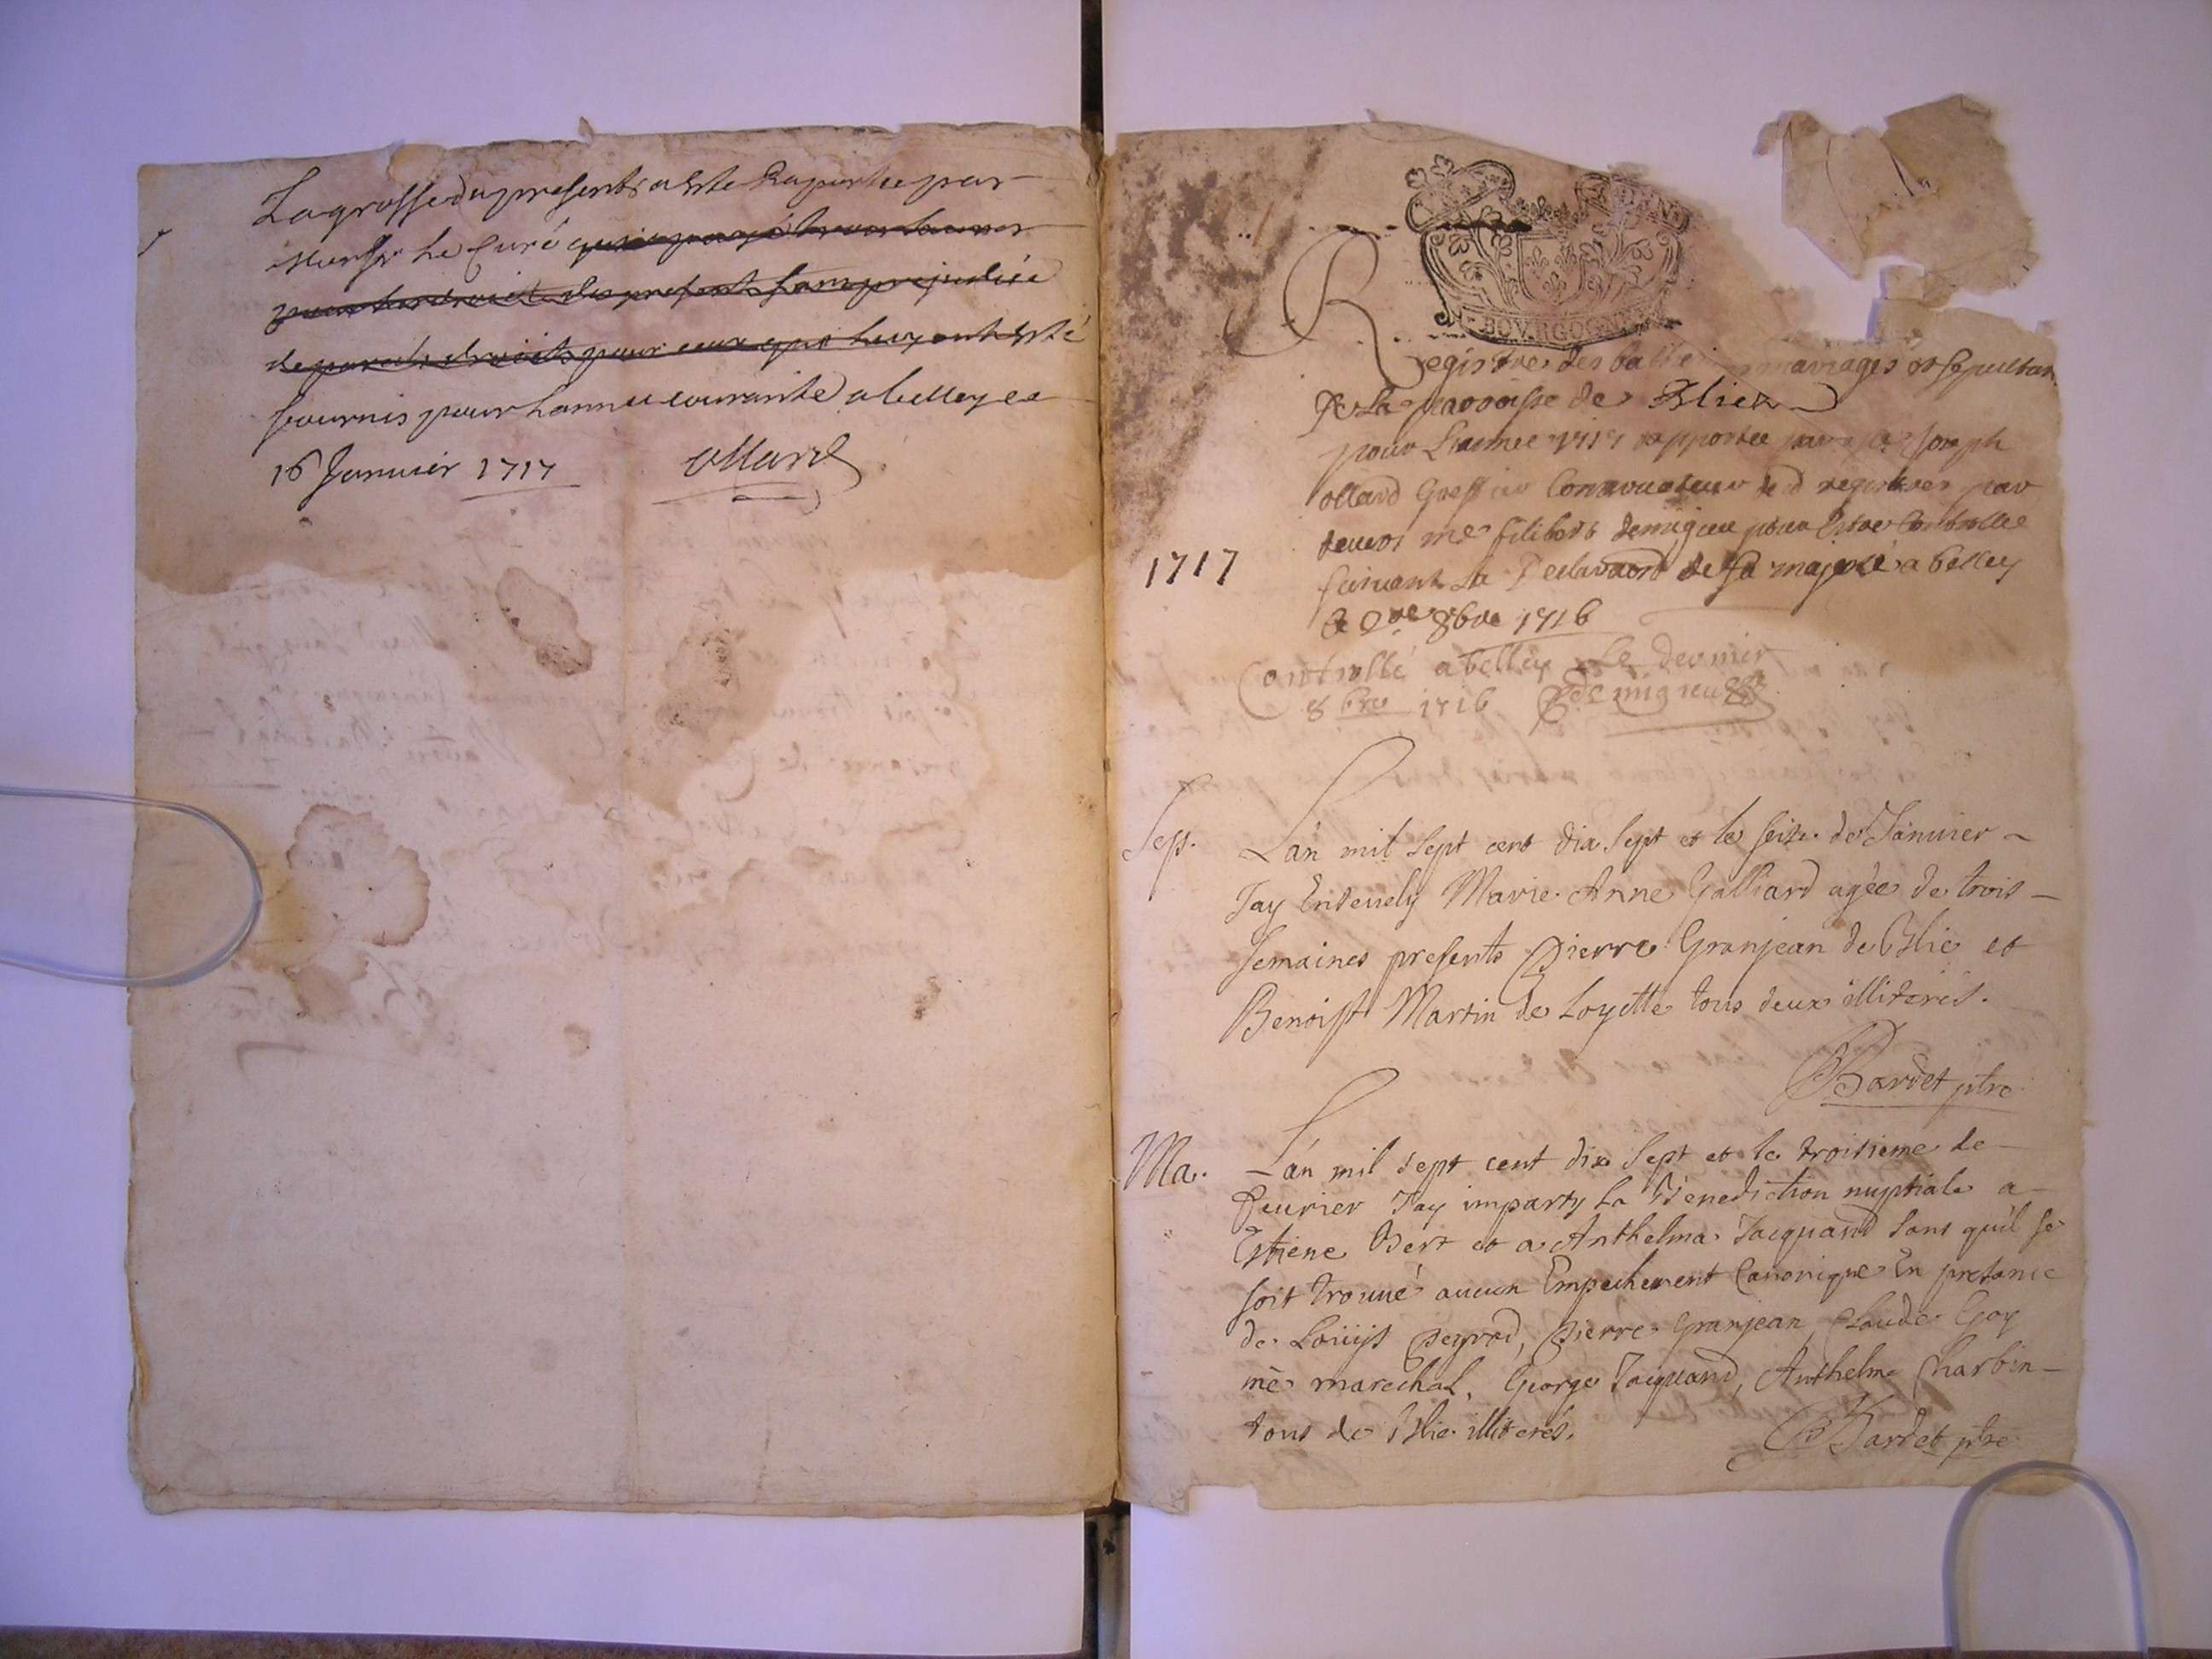 La grosse du present a esté Raportee par
Messr le Curé qui a payé
pour les droits du present sans prejudice
de pareils droits pour ceux qui luy ont esté
fournis pour lannee courante a belley ce
16 Januier 1717 Ollard
BOVRGOGNE
Registre des batte mariages et sepultur
de La parroisse de Blien
pour Lannee 1717 rapportee par Joseph
ollard Greffier Conservateur de d registres par
deuers me filibert demigieu pour Estre Controllee
suivant La Declaraon de Sa majesté a belley
8bre 1716
1717
Controllé a belley Le dernier
8bre 1716 demigieu
Sep. L'an mil sept cent dix sept et le seize de Januier
J'ay Enseuely Marie Anne Galliard agée de trois
semaines presents Pierre Granjean de Blie et
Benoist Martin de Loyette tous deux illiterés.
Bardet ptre
Ma. L'an mil sept cent dix sept et le troisieme de
feurier J'ay imparty La Benediction nuptiale a
Estiene Bert et a Anthelma Jacquand sans quil se
soit trouué aucun Empechement Canonique En presance
de Loüys Peyrod, Pierre Granjean, Claude Goy
me marechal, George Jacquand, Anthelme Charbin
tous de Blie illiterés.
Bardet ptre